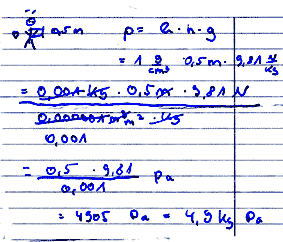 0,5m p = h · g
= 1 g/cm³ · 0,5m · 9,81 N/kg
= 0,001 kg · 0,5m · 9,81 N
0,000001 m³ · kg
0,001
= 0,5 · 9,81 / 0,001 Pa
= 4905 Pa = 4,9 kg Pa